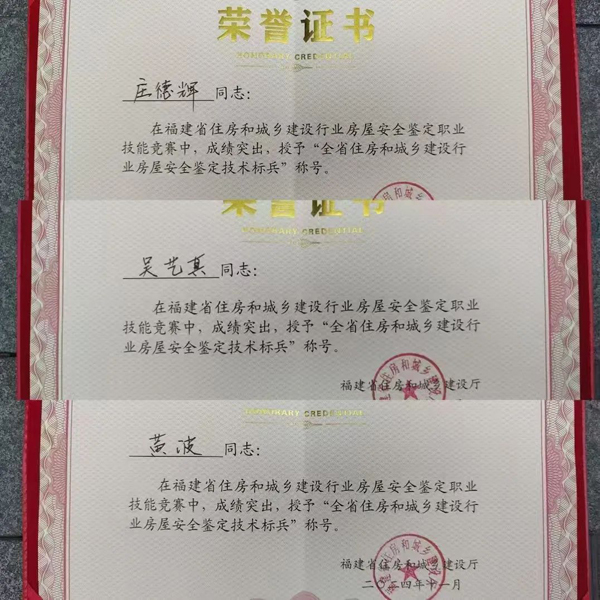 荣誉证书
HONORARY CREDENTIAL
庄德辉 同志：
在福建省住房和城乡建设行业房屋安全鉴定职业
技能竞赛中，成绩突出，授予“全省住房和城乡建设行
业房屋安全鉴定技术标兵”称号。
荣誉证书
HONORARY CREDENTIAL
吴艺真 同志：
在福建省住房和城乡建设行业房屋安全鉴定职业
技能竞赛中，成绩突出，授予“全省住房和城乡建设行
业房屋安全鉴定技术标兵”称号。
福建省住房和城乡建设厅
HONORARY CREDENTIAL
黄波 同志：
在福建省住房和城乡建设行业房屋安全鉴定职业
技能竞赛中，成绩突出，授予“全省住房和城乡建设行
业房屋安全鉴定技术标兵”称号。
福建省住房和城乡建设厅
二〇二四年十一月